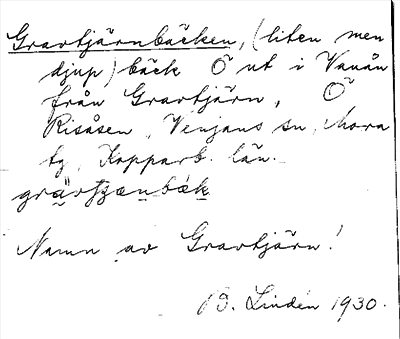 Gravtjärnbäcken, (liten men
djup) bäck Ö ut i Vanån
från Gravtjärn, Ö
Risåsen, Venjans sn, Mora
tg, Kopparb. län.
Namn av Gravtjärn!
B. Lindén 1930.